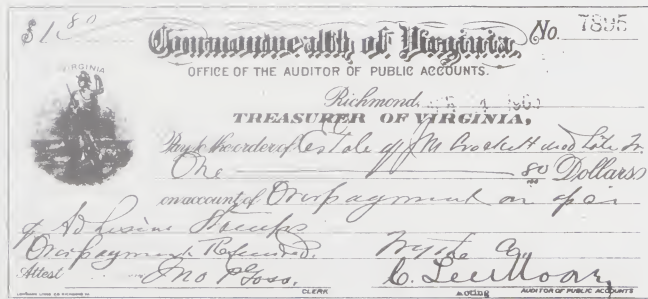 $1 80
Commonwealth of Virginia,
No. 7895
OFFICE OF THE AUDITOR OF PUBLIC ACCOUNTS.
VIRGINIA
Richmond, 4
TREASURER OF VIRGINIA,
Pay to the order of Estate of J M Crockett
One 80/100 Dollars
on account of Overpayment on
of Adhesive Stamps
Overpayment Refunded.
Attest Jno P Goss, CLERK
C. Lee Moore, Acting AUDITOR OF PUBLIC ACCOUNTS